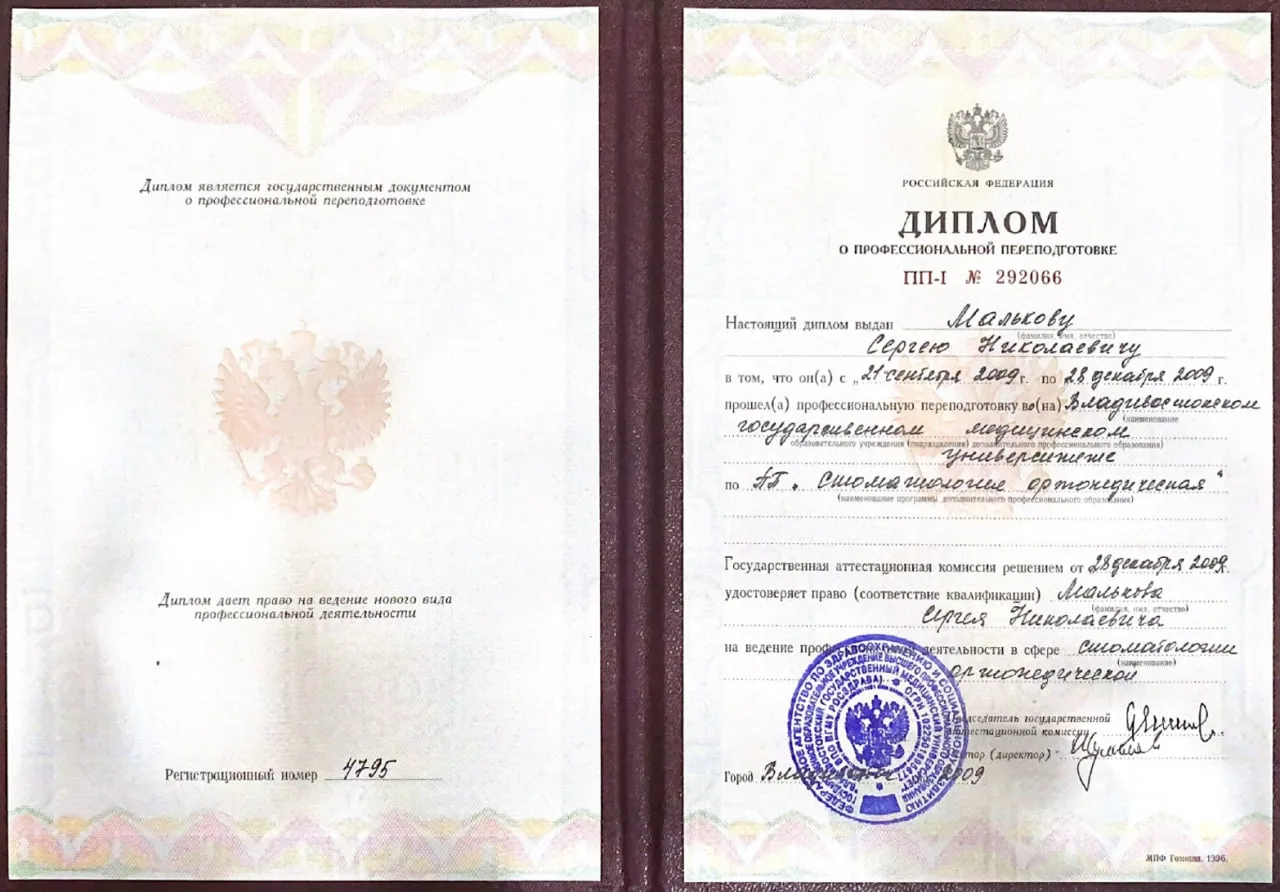 Диплом является государственным документом
о профессиональной переподготовке
Диплом дает право на ведение нового вида
профессиональной деятельности
Регистрационный номер 4795
РОССИЙСКАЯ ФЕДЕРАЦИЯ
ДИПЛОМ
О ПРОФЕССИОНАЛЬНОЙ ПЕРЕПОДГОТОВКЕ
ПП-I № 292066
Настоящий диплом выдан Малькову
(фамилия, имя, отчество)
Сергею Николаевичу
в том, что он(а) с „21 сентября 2009 г. по 28 декабря 2009 г.
прошел(а) профессиональную переподготовку в(на) Владивостокском
(наименование
государственном медицинском
образовательного учреждения (подразделения) дополнительного профессионального образования)
университете
по ПП „Стоматология ортопедическая“
(наименование программы дополнительного профессионального образования)
Государственная аттестационная комиссия решением от 28 декабря 2009г.
удостоверяет право (соответствие квалификации) Малькова
(фамилия, имя, отчество)
Сергея Николаевича
на ведение деятельности в сфере стоматологии
(наименование)
ортопедической
государственной
комиссии
(директор)
Город Владивосток 2009
ФЕДЕРАЛЬНОЕ АГЕНТСТВО ПО ЗДРАВООХРАНЕНИЮ И СОЦИАЛЬНОМУ РАЗВИТИЮ
МПФ Гознака. 1996.